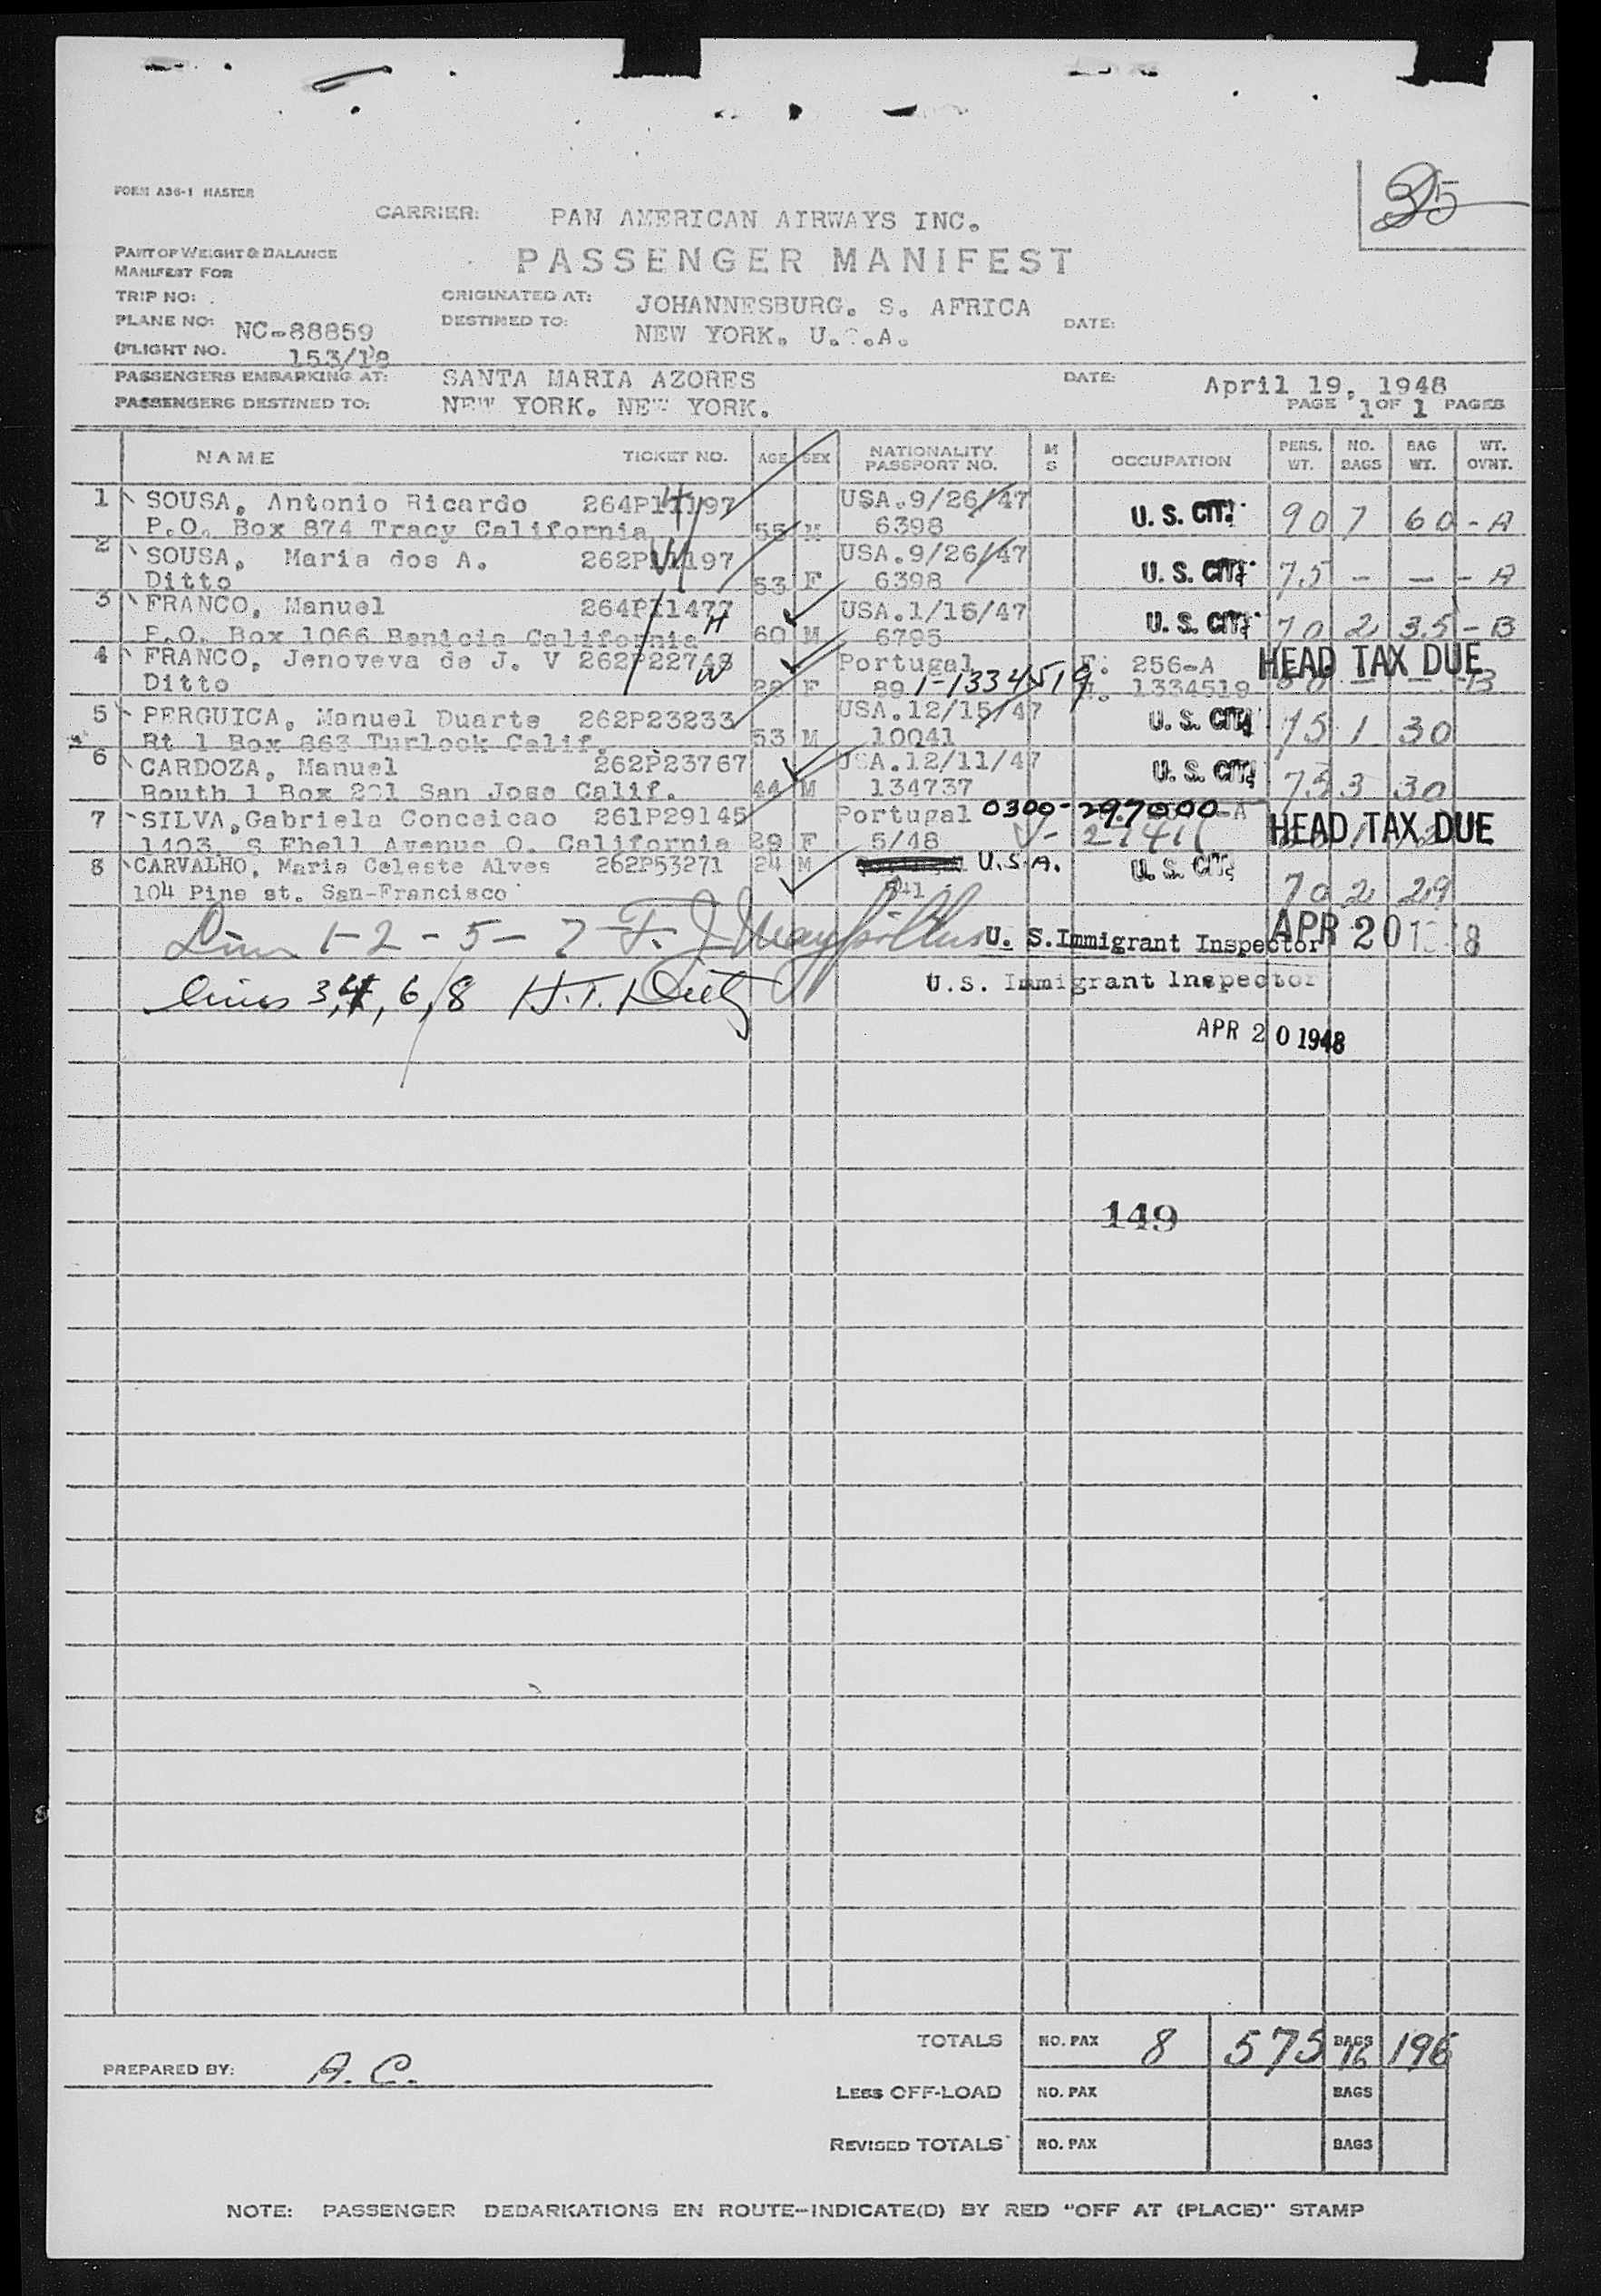 25
FORM A36-1 MASTER
CARRIER: PAN AMERICAN AIRWAYS INC.
PART OF WEIGHT & BALANCE
MANIFEST FOR
PASSENGER MANIFEST
TRIP NO:
ORIGINATED AT: JOHANNESBURG. S. AFRICA
PLANE NO: NC-88859
DESTINED TO: NEW YORK. U.S.A.
DATE:
(FLIGHT NO. 153/18
PASSENGERS EMBARKING AT: SANTA MARIA AZORES
DATE: April 19, 1948
PASSENGERS DESTINED TO: NEW YORK. NEW YORK.
PAGE 1 OF 1 PAGES
NAME TICKET NO. AGE SEX NATIONALITY PASSPORT NO. M S OCCUPATION PERS. WT. NO. BAGS BAG WT. WT. OVNT.
1 SOUSA, Antonio Ricardo 264P11197 USA.9/26/47
P.O. Box 874 Tracy California 55 M 6398 U. S. CIT. 90 7 60 - A
2 SOUSA, Maria dos A. 262P11197 USA.9/26/47
Ditto 53 F 6398 U. S. CIT. 75 - - - A
3 FRANCO, Manuel 264P11477 USA.1/15/47
P.O. Box 1066 Benicia California H 60 M 6795 U. S. CIT. 70 2 35 - B
4 FRANCO, Jenoveva de J. V 262P22748 Portugal 256-A HEAD TAX DUE
Ditto W 28 F 89 1-1334519 1334519 B
5 PERGUICA, Manuel Duarte 262P23233 USA.12/15/47
Rt 1 Box 863 Turlock Calif. 53 M 10041 U. S. CIT. 75 1 30
6 CARDOZA, Manuel 262P23767 USA.12/11/47
Routh 1 Box 221 San Jose Calif. 44 M 134737 U. S. CIT. 75 3 30
7 SILVA,Gabriela Conceicao 261P29145 Portugal 0300-297000-A
1403, S Ehell Avenue O. California 29 F 5/48 HEAD TAX DUE
8 CARVALHO, Maria Celeste Alves 262P53271 24 M U.S.A. U. S. CIT.
104 Pine st. San-Francisco 541 70 2 29
1-2-5-7 U. S. Immigrant Inspector APR 20 1948
Lines 3,4, 6, 8 U.S. Immigrant Inspector
APR 20 1948
149
TOTALS NO. PAX 8 575 BAGS 16 196
PREPARED BY: A. C.
LESS OFF-LOAD NO. PAX BAGS
REVISED TOTALS NO. PAX BAGS
NOTE: PASSENGER DEBARKATIONS EN ROUTE-INDICATE(D) BY RED "OFF AT (PLACE)" STAMP